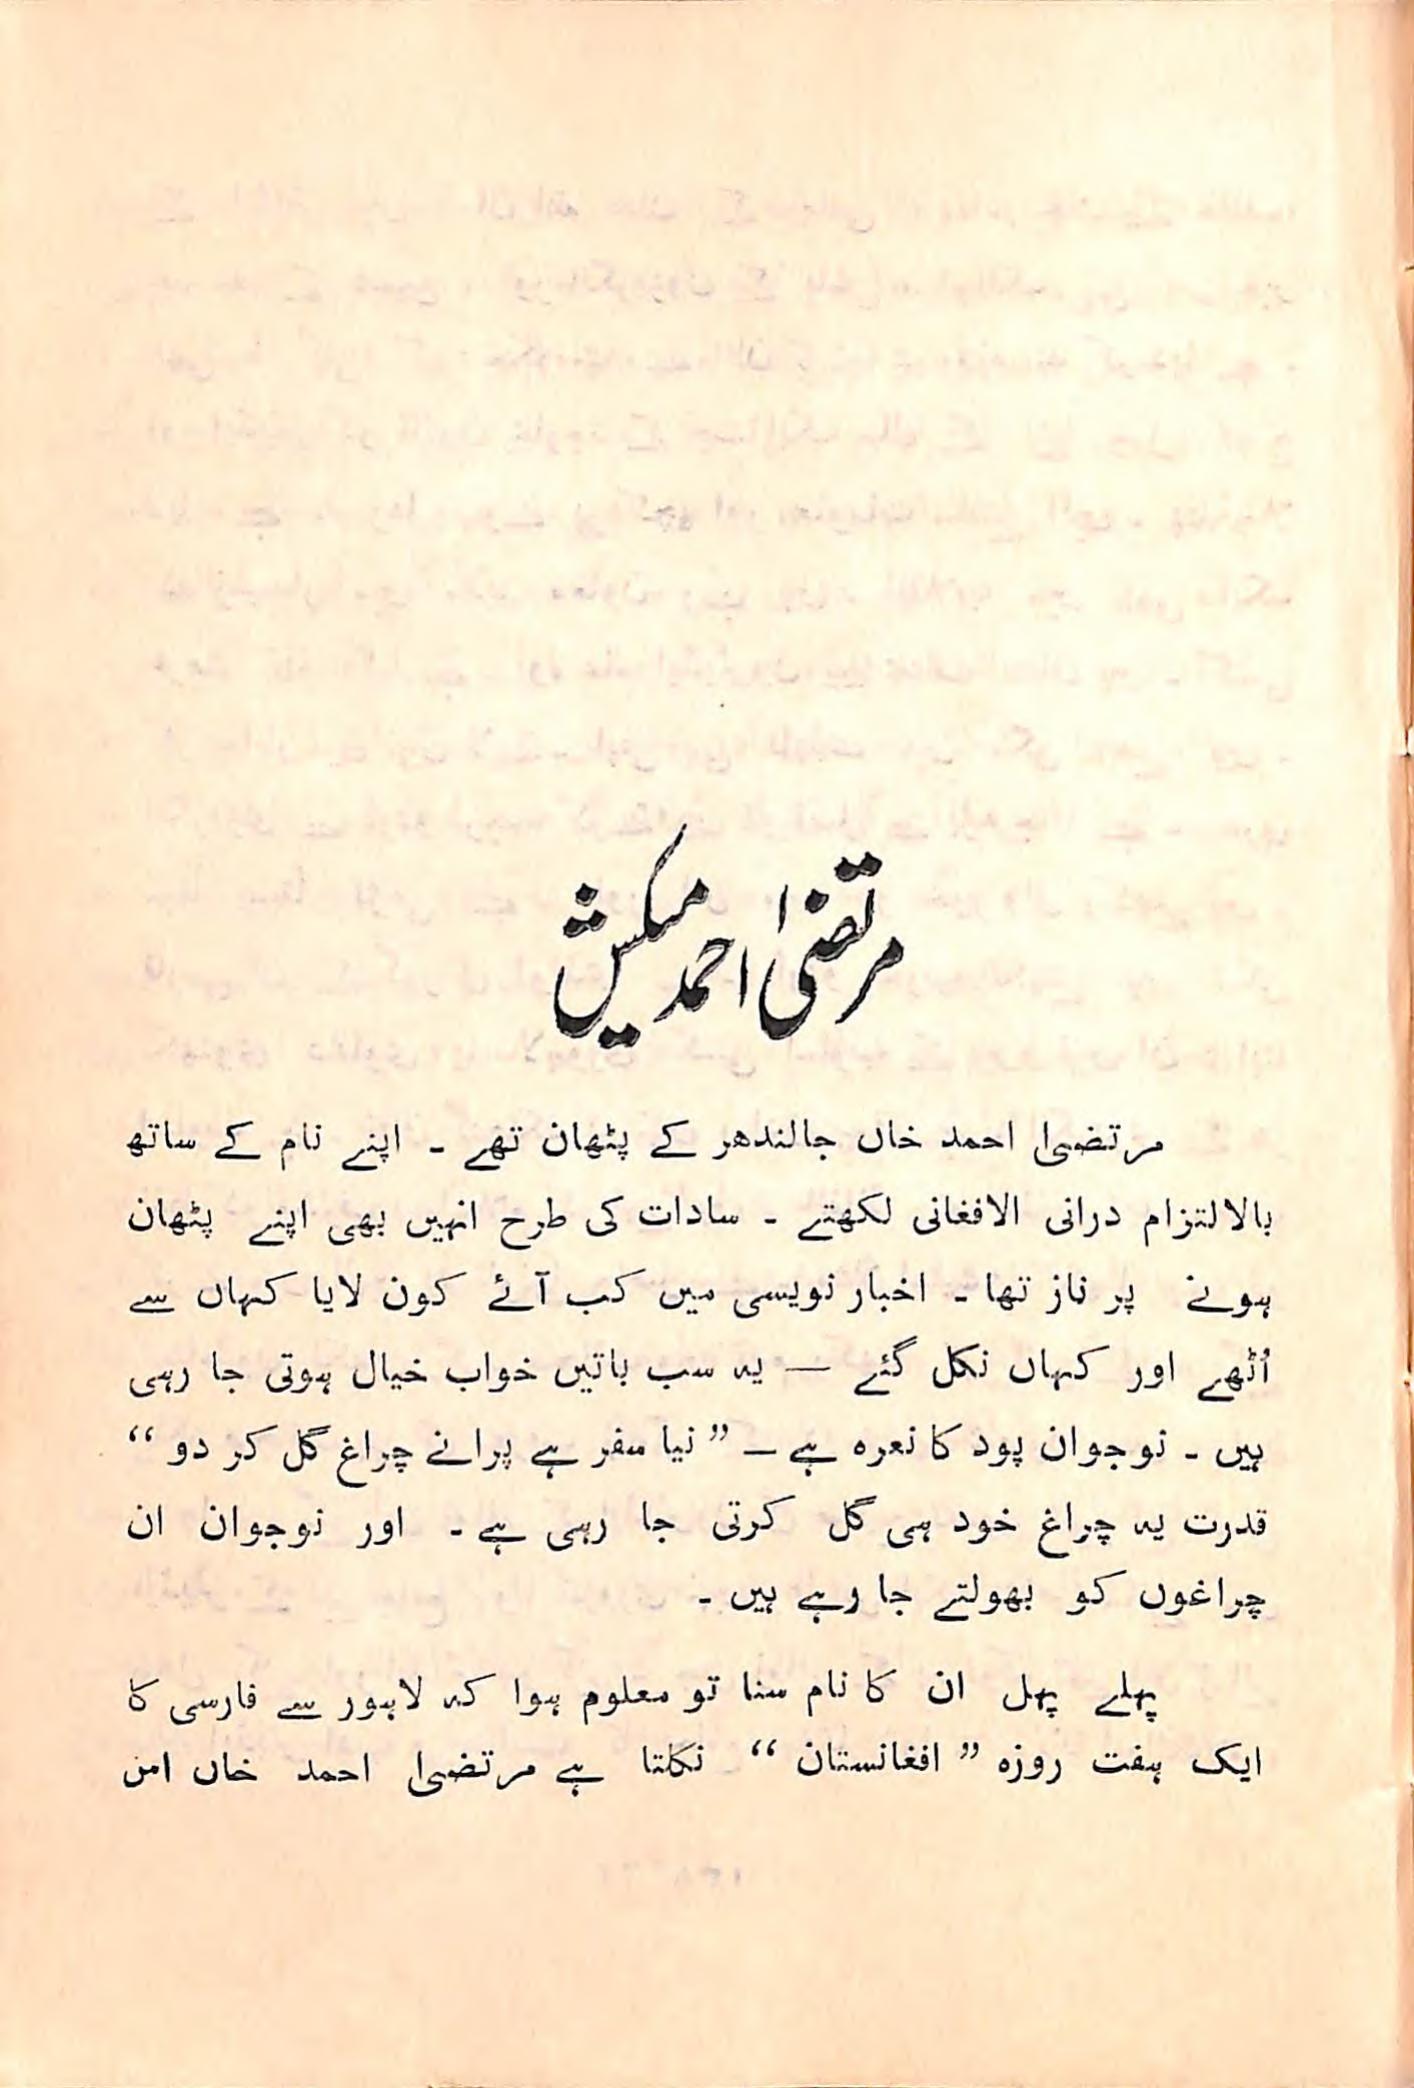 مرتضیٰ احمد میکش
مرتضیٰ احمد خاں جالندھر کے پٹھان تھے ۔ اپنے نام کے ساتھ
بالالتزام درانی الافغانی لکھتے ۔ سادات کی طرح انہیں بھی اپنے پٹھان
ہونے پر ناز تھا ۔ اخبار نویسی میں کب آئے کون لایا کہاں سے
اُٹھے اور کہاں نکل گئے — یہ سب باتیں خواب خیال ہوتی جا رہی
ہیں ۔ نوجوان پود کا نعرہ ہے — ”نیا سفر ہے پرانے چراغ گل کر دو“
قدرت یہ چراغ خود ہی گل کرتی جا رہی ہے ۔ اور نوجوان ان
چراغوں کو بھولتے جا رہے ہیں ۔
پہلے پہل ان کا نام سنا تو معلوم ہوا کہ لاہور سے فارسی کا
ایک ہفت روزہ ”افغانستان“ نکلتا ہے مرتضیٰ احمد خاں اس